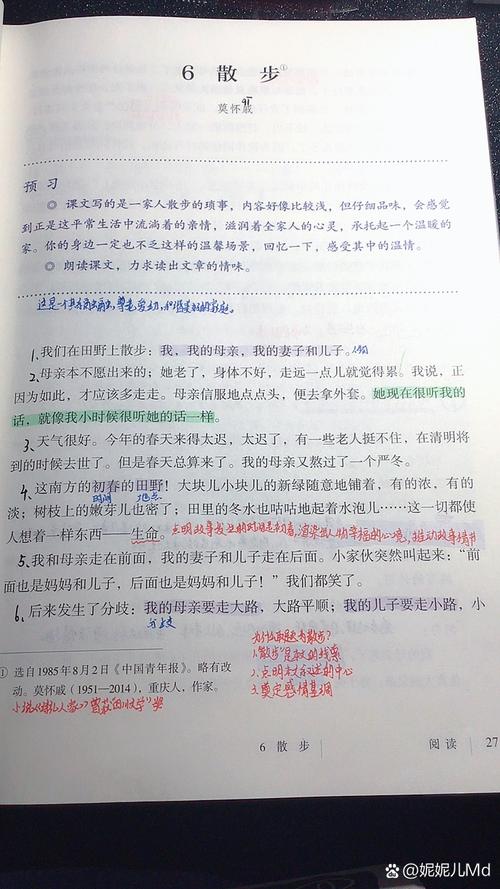 6 散 步①
莫怀戚
qī
预 习
◎ 课文写的是一家人散步的琐事，内容好像比较浅，但仔细品味，会感觉
到正是这平常生活中流淌着的亲情，滋润着全家人的心灵，承托起一个温暖的
家。你的身边一定也不乏这样的温馨场景，回忆一下，感受其中的温情。
◎ 朗读课文，力求读出文章的情味。
这是一个 尊老爱幼、 的家庭。
1、我们在田野上散步：我，我的母亲，我的妻子和儿子。
2、母亲本不愿出来的；她老了，身体不好，走远一点儿就觉得累。我说，正
因为如此，才应该多走走。母亲信服地点点头，便去拿外套。她现在很听我的
话，就像我小时候很听她的话一样。
3、天气很好。今年的春天来得太迟，太迟了，有一些老人挺不住，在清明将
到的时候去世了。但是春天总算来了。我的母亲又熬过了一个严冬。
4、这南方的初春的田野！大块儿小块儿的新绿随意地铺着，有的浓，有的
时间 地点
淡；树枝上的嫩芽儿也密了；田里的冬水也咕咕地起着水泡儿……这一切都使
人想着一样东西——生命。点明故事发生的时间是初春，渲染出人物幸福的心境，推动故事情节
5、我和母亲走在前面，我的妻子和儿子走在后面。小家伙突然叫起来：“前
面也是妈妈和儿子，后面也是妈妈和儿子！”我们都笑了。
6、后来发生了分歧：我的母亲要走大路，大路平顺；我的儿子要走小路，小
分歧
为什么以题为散步？
1、“散步”是文的线索
2、点明 叙述的中心
3、奠定感情基调
① 选自1985年8月2日《中国青年报》。略有改
动。莫怀戚（1951—2014），重庆人，作家。
小说《 人家》曾获“ 文学”奖
6 散 步
阅读 27
百家号/妮妮儿Md